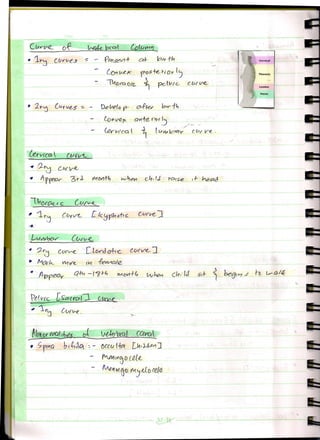 Curve of Vertebral Column
• 1ry curves :- - Present at birth
- Convex posteriorly
- Thoracic & pelvic curve
Cervical
Thoracic
Lumbar
• 2ry Curves :- - Develop after birth
- Convex anteriorly
- Cervical & lumbar curve
Cervical Curve
• 2ry curve
• Appear 3rd month when child raise it head
Thoracic Curve
• 1ry Curve [kyphotic curve]
Lumbar Curve
• 2ry curve [lordotic curve]
• Mark more in female
• Appear 9th -18th month when child sit & begins to walk
Pelvic [Sacral] Curve
• 1ry Curve.
Abnormalities of vertebral canal
• Spina bifida :- - occulta
- Meningocele
- Meningomyelocele